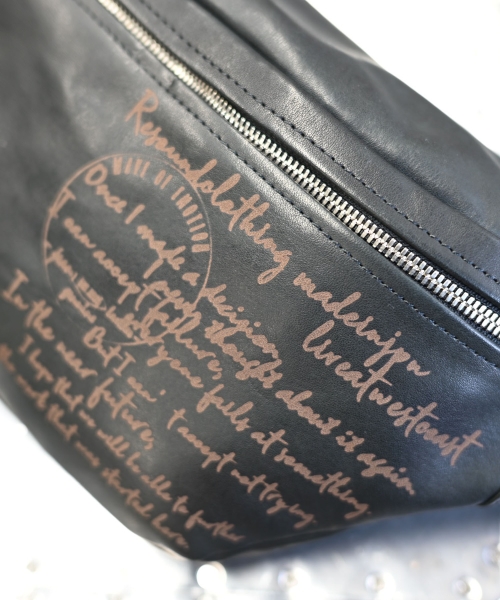 Respondclothing madeinjpn
liveatwestcoast
MADE BY ENDING
Once I made a decision,
I never thought about it again.
I can accept failure,
everyone fails at something.
But I can't accept not trying.
In the near future,
I hope that we will be able to further
the work that was started here